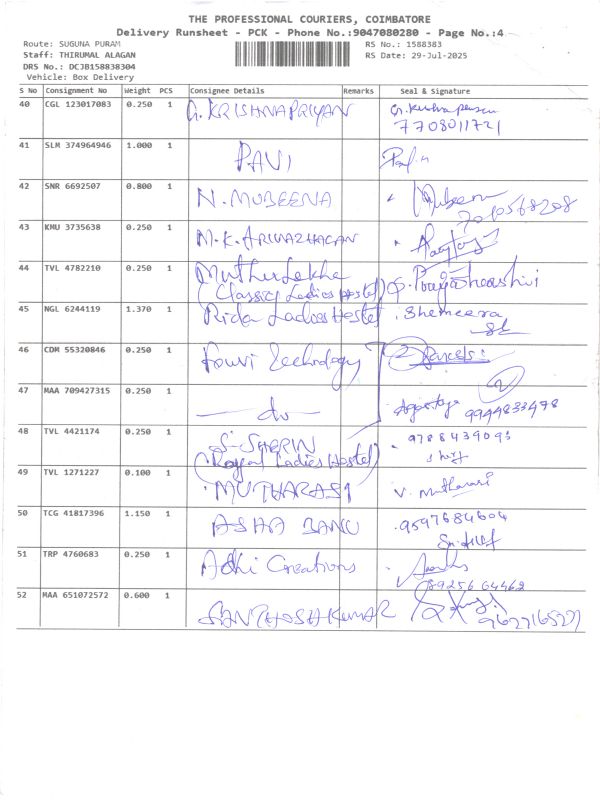 THE PROFESSIONAL COURIERS, COIMBATORE
Delivery Runsheet - PCK - Phone No.:9047080280 - Page No.:4
Route: SUGUNA PURAM
RS No.: 1588383
Staff: THIRUMAL ALAGAN
RS Date: 29-Jul-2025
DRS No.: DCJB158838304
Vehicle: Box Delivery
S No Consignment No Weight PCS Consignee Details Remarks Seal & Signature
40 CGL 123017083 0.250 1 G. KRISHNAPRIYAN
7708011721
41 SLM 374964946 1.000 1 PAVI
42 SNR 6692507 0.800 1 N. MUBEENA Mubeena
43 KMU 3735638 0.250 1 M.K. ARIVAZHAGAN
44 TVL 4782210 0.250 1 Muthu Lekha
(Classic Ladies Hostel)
45 NGL 6244119 1.370 1 Rida Ladies Hostel Shemeera
46 CDM 55320846 0.250 1 Technology 2 Parcels
47 MAA 709427315 0.250 1 do 9944833478
48 TVL 4421174 0.250 1 S. SHERIN
(Royal Ladies Hostel)
49 TVL 1271227 0.100 1 MUTHARASI V. Mutharasi
50 TCG 41817396 1.150 1 ASHA BANU 9597684604
51 TRP 4760683 0.250 1 Adhi Creations
8925664462
52 MAA 651072572 0.600 1 SANTHOSHKUMAR